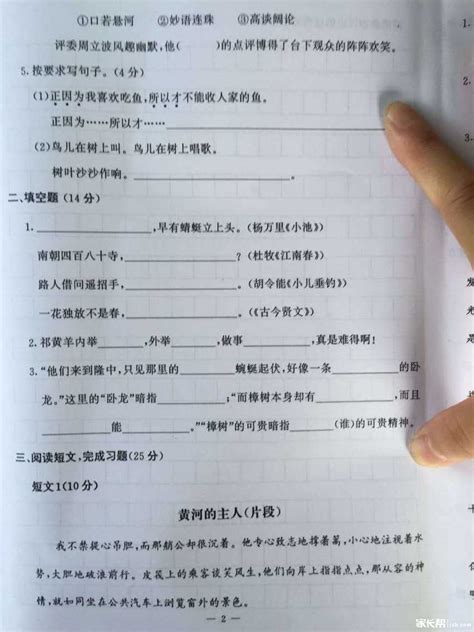 ①口若悬河 ②妙语连珠 ③高谈阔论
评委周立波风趣幽默,他( )的点评博得了台下观众的阵阵欢笑。
5.按要求写句子。(4分)
(1)正因为我喜欢吃鱼,所以才不能收人家的鱼。
正因为……所以才……
(2)鸟儿在树上叫。鸟儿在树上唱歌。
树叶沙沙作响。
二、填空题(14分)
1. ,早有蜻蜓立上头。(杨万里《小池》)
南朝四百八十寺, ?(杜牧《江南春》)
路人借问遥招手, 。(胡令能《小儿垂钓》)
一花独放不是春, 。(《古今贤文》)
2.祁黄羊内举 ,外举 ,做事 ,真是难得啊!
3.“他们来到隆中,只见那里的 蜿蜒起伏,好像一条 的卧
龙。”这里的“卧龙”暗指 ;“而樟树本身却有 ,而且
能 。”“樟树”的可贵暗指 (谁)的可贵精神。
三、阅读短文,完成习题(25分)
短文1(10分)
黄河的主人(片段)
我不禁提心吊胆,而那艄公却很沉着。他专心致志地撑着篙,小心地注视着水
势,大胆地破浪前行。皮筏上的乘客谈笑风生,他们向岸上指指点点,那从容的神
情,就如同坐在公共汽车上浏览窗外的景色。
— 2 —
1.
2.
3.
发
光
是
家长帮